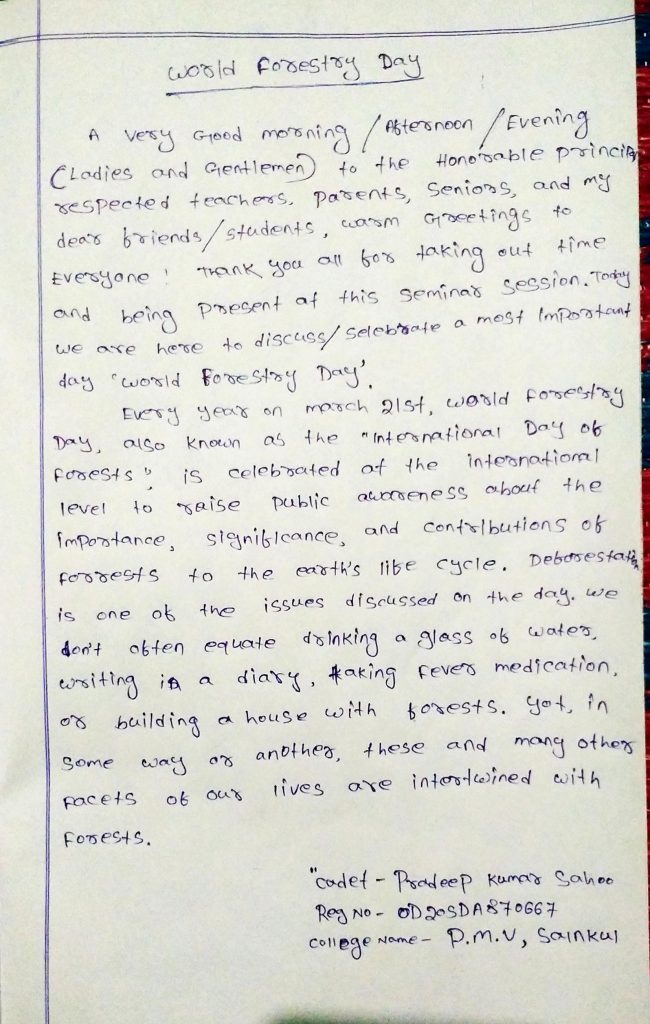 World Forestry Day
A very Good morning / Afternoon / Evening
(Ladies and Gentlemen) to the Honorable princip
respected teachers, parents, seniors, and my
dear friends / students, warm Greetings to
Everyone! Thank you all for taking out time
and being present at this seminar session. Today
we are here to discuss / selebrate a most Important
day 'World Forestry Day'.
Every year on march 21st, world Forestry
Day, also known as the "International Day of
Forests", is celebrated at the international
level to raise public awareness about the
importance, significance, and contributions of
forrests to the earth's life cycle. Deforestation
is one of the issues discussed on the day. we
don't often equate drinking a glass of water,
writing in a diary, taking fever medication,
or building a house with forests. yet, in
some way or another, these and many other
facets of our lives are intertwined with
forests.
"cadet - Pradeep Kumar Sahoo
Reg No - OD20SDA870667
College Name - P.M.V, Sainkul